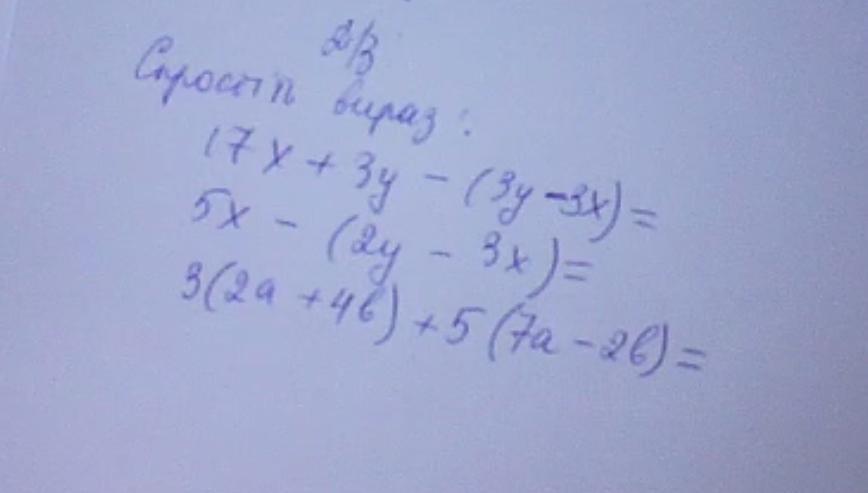 д/з
Спростіть вираз:
17x + 3y - (3y - 3x) =
5x - (2y - 3x) =
3(2a + 4b) + 5(7a - 2b) =